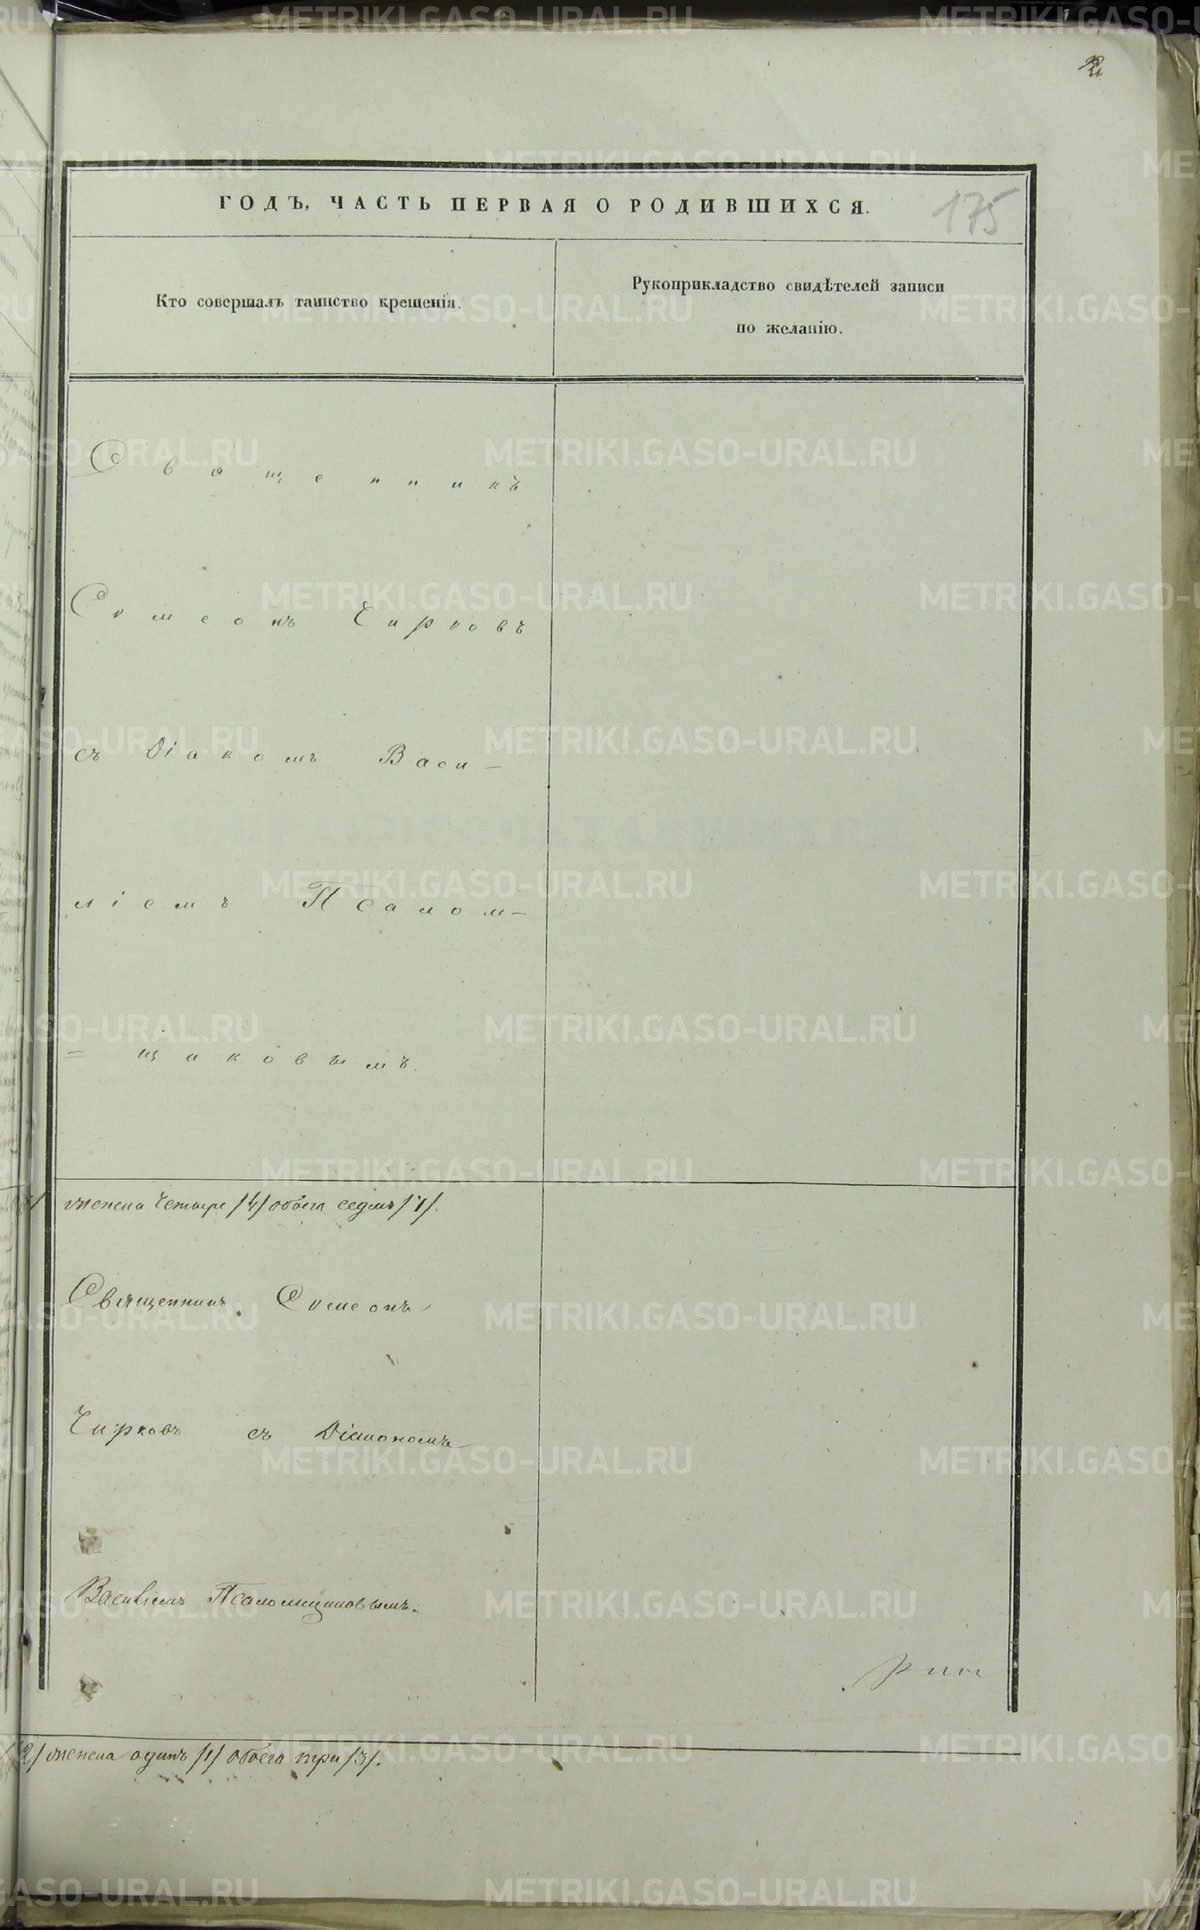 175
ГОДЪ, ЧАСТЬ ПЕРВАЯ О РОДИВШИХСЯ.
Кто совершалъ таинство крещенія.
Рукоприкладство свидѣтелей записи
по желанію.
Священникъ
Сѵмеонъ Чирковъ
съ Діакомъ Васи-
ліемъ Псалом-
=щиковымъ.
женска четыре /4/ обоего седмь /7/.
Священникъ Сѵмеонъ
Чирковъ съ Діакономъ
Василіемъ Псаломщиковымъ.
2/ женска одинъ /1/ обоего три /3/.
METRIKI.GASO-URAL.RU